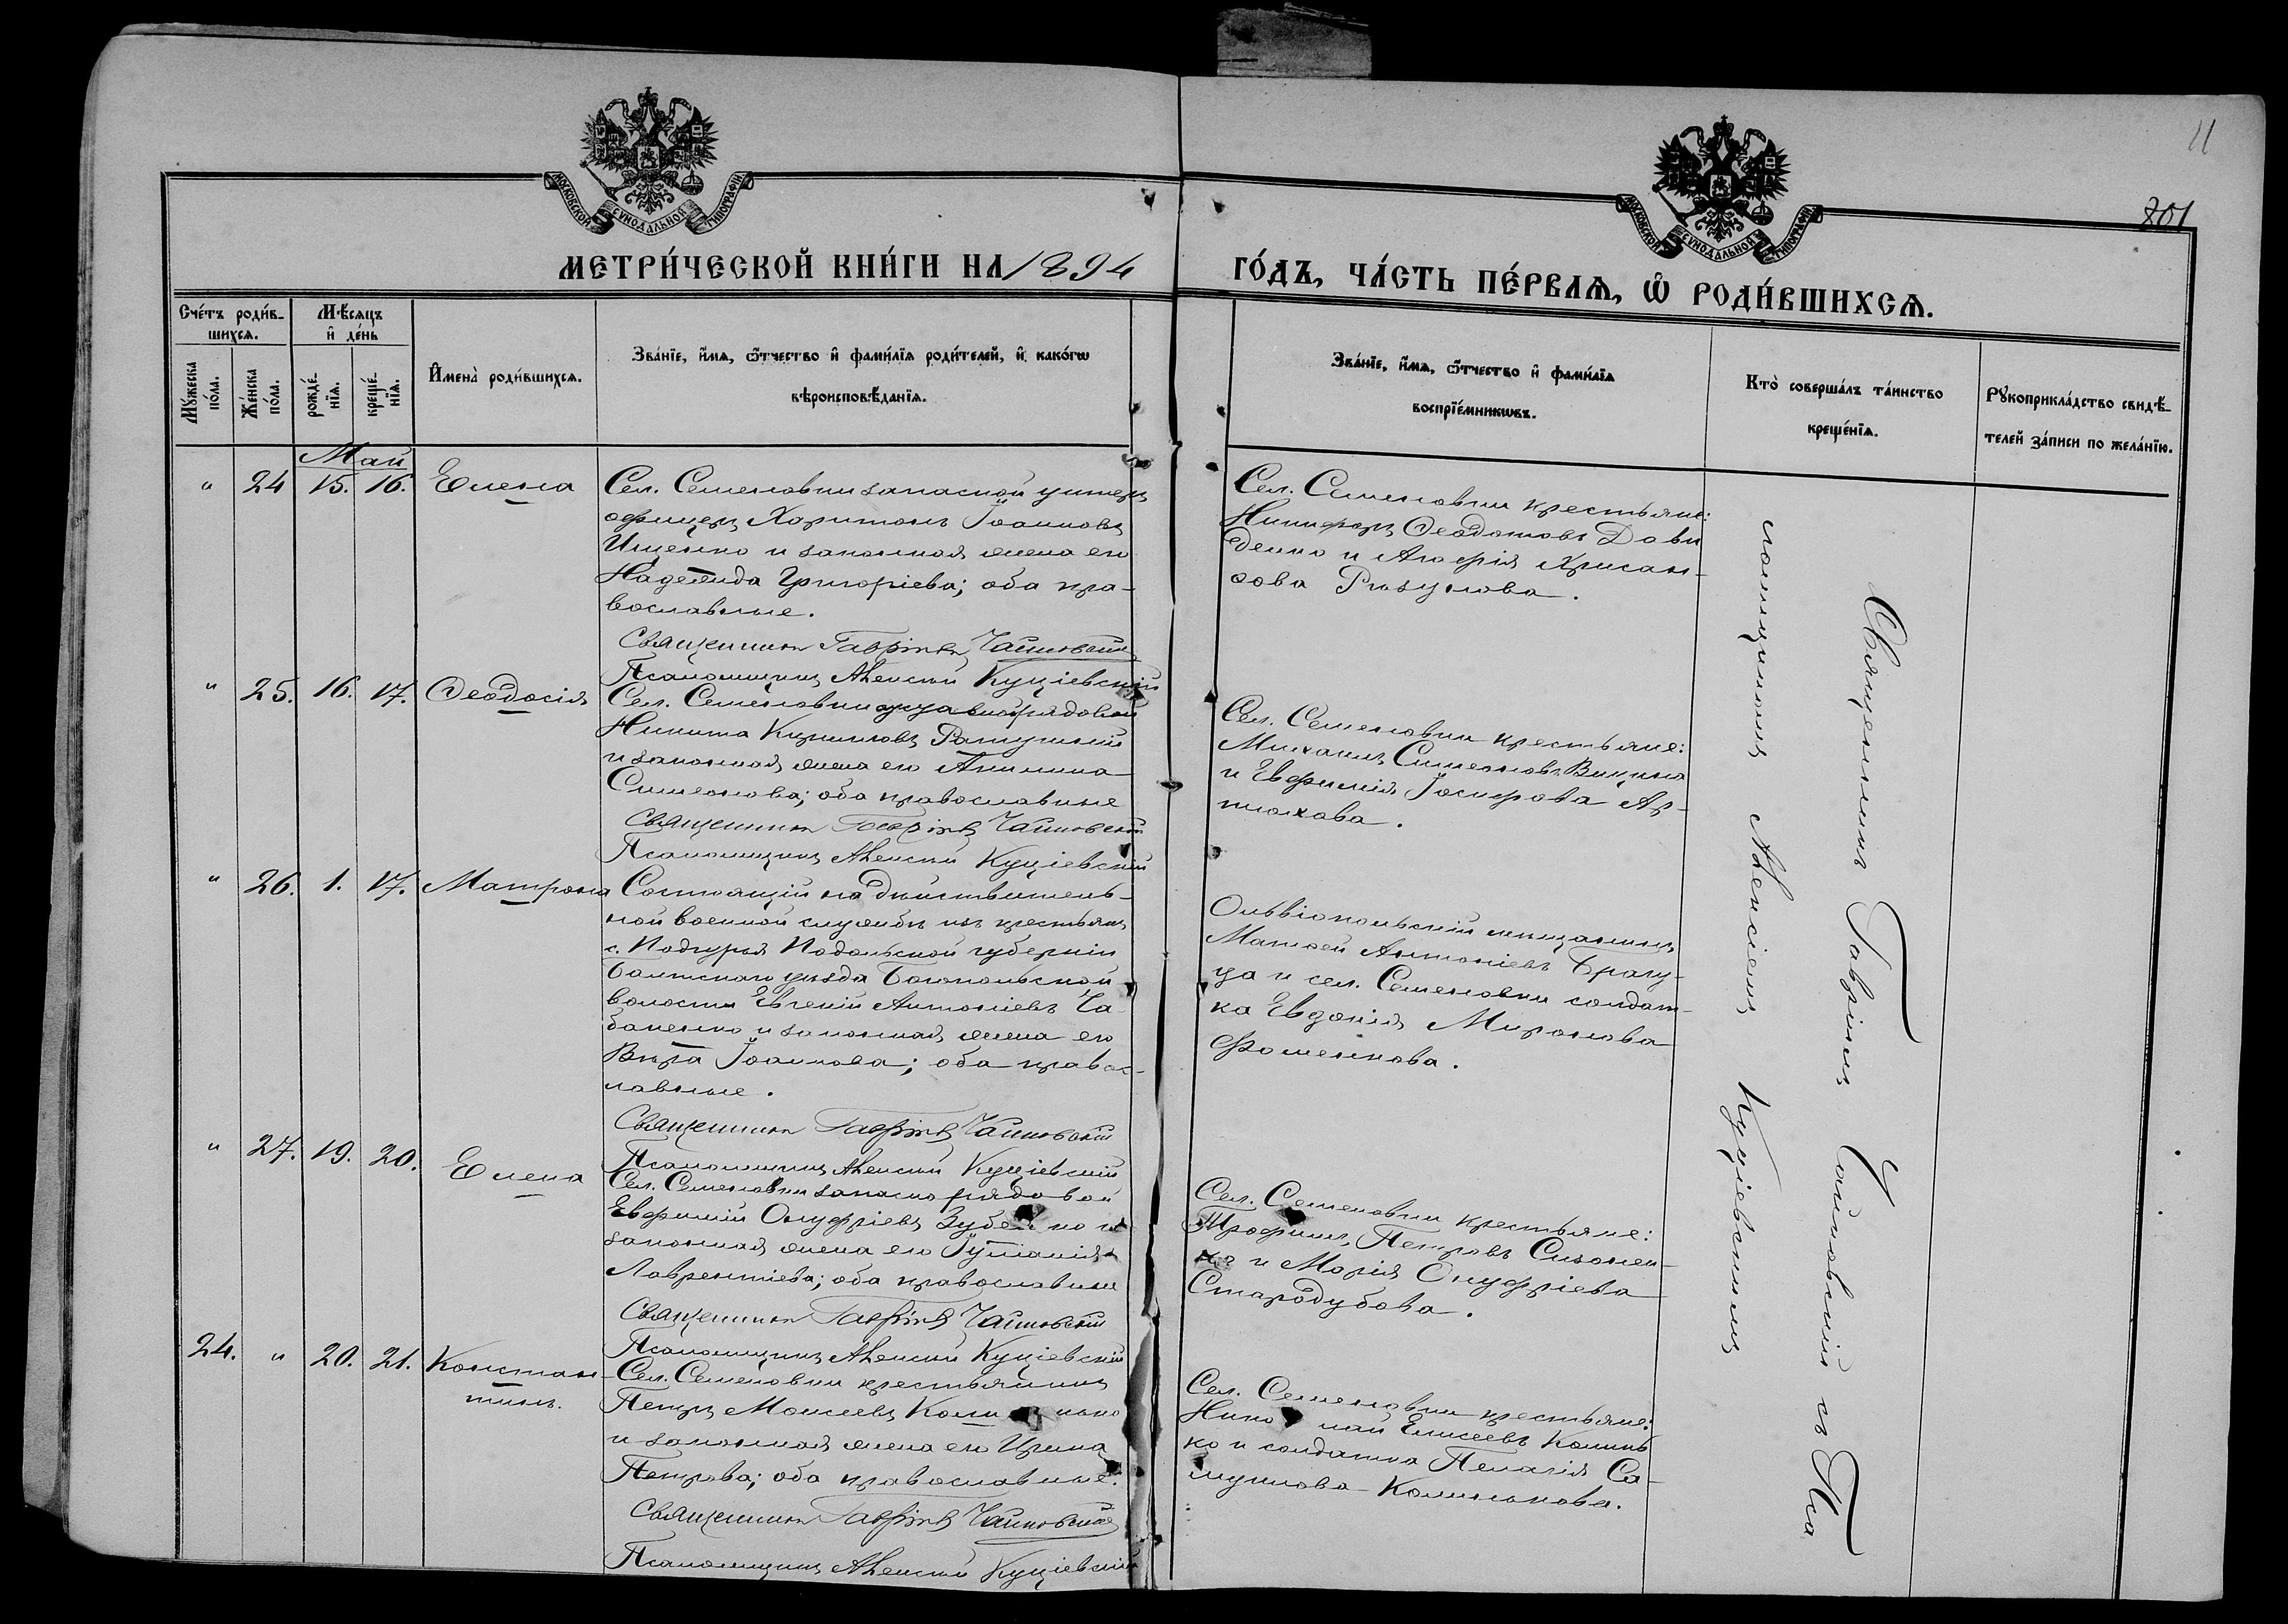 11
801
МОСКОВСКОЙ СУНОДАЛЬНОЙ ТИПОГРАФІИ
МОСКОВСКОЙ СУНОДАЛЬНОЙ ТИПОГРАФІИ
МЕТРИ́ЧЕСКОЙ КНИ́ГИ НА 1894
ГО́ДЪ, ЧА́СТЬ ПЕ́РВАѦ, Ѽ РОДИ́ВШИХСѦ.
Сче́тъ роди́в-
шихсѧ.
Мѣ́сѧцъ
и҆ де́нь
Мꙋ́жеска
по́ла.
Же́нска
по́ла.
рожде́-
нїѧ.
креще́-
нїѧ.
И҆мена̀ роди́вшихсѧ.
Зва́нїе, и҆́мѧ, ѻ҆́тчество и҆ фами́лїѧ роди́телей, и҆ како́гѡ
вѣроисповѣ́данїѧ.
Зва́нїе, и҆́мѧ, ѻ҆́тчество и҆ фами́лїѧ
воспрїе́мникѡвъ.
Кто̀ соверша́лъ та́инство
креще́нїѧ.
Рꙋкоприкла́дство свидѣ́-
телей за́писи по жела́нїю.
Май
" 24 15. 16. Елена
Сел. Семеновки запасной унтеръ
офицеръ Харитонъ Іоанновъ
Ищенко и законная жена его
Надежда Григоріева; оба пра-
вославные.
Священникъ Гавріилъ Чайковскій
Псаломщикъ Алексій Куціевскій
Сел. Семеновки крестьяне:
Никифоръ Ѳеодотовъ Дави
денко и Агафія Хрисан-
ѳова
" 25. 16. 17. Ѳеодосія
Сел. Семеновки рядовой
Никита Кирилловъ
и законная жена его Акилина
Симеонова; оба православные
Священникъ Гавріилъ Чайковскій
Псаломщикъ Алексій Куціевскій
Сел. Семеновки крестьяне:
Михаилъ Симеоновъ
и Евфимія Іосифова Ар-
тюхова.
" 26. 1. 17. Матрона
Состоящій на дѣйствитель-
ной военной службѣ изъ крестьянъ
с. Подгурья Подольской губерніи
Балтскаго уѣзда Богопольской
волости Евгеній Антоніевъ Ча-
баненко и законная жена его
Вѣра Іоаннова; оба правос-
лавные.
Священникъ Гавріилъ Чайковскій
Псаломщикъ Алексій Куціевскій
Ольвіопольскій мѣщанинъ
Матѳей Антоніевъ Брагу-
ца и сел. Семеновки солдат-
ка Евдокія Миронова
Фоменкова.
" 27. 19. 20. Елена
Сел. Семеновки запасно рядовой
Евфимій Онуфріевъ и
законная жена его Іуліанія
Лаврентіева; оба православные
Священникъ Гавріилъ Чайковскій
Псаломщикъ Алексій Куціевскій
Сел. Семеновки крестьяне:
Трофимъ Петровъ Сизонен-
ко и Марія Онуфріева
Стародубова.
24. " 20. 21. Констан-
тинъ.
Сел. Семеновки крестьянинъ
Петръ Моисеевъ
и законная жена его Ирина
Петрова; оба православные.
Священникъ Гавріилъ Чайковскій
Псаломщикъ Алексій Куціевскій
Сел. Семеновки крестьяне:
Николай Елисеевъ
ко и солдатка Пелагія Са-
муилова
Священникъ Гавріилъ Чайковскій съ Пса
ломщикомъ Алексіемъ Куціевскимъ